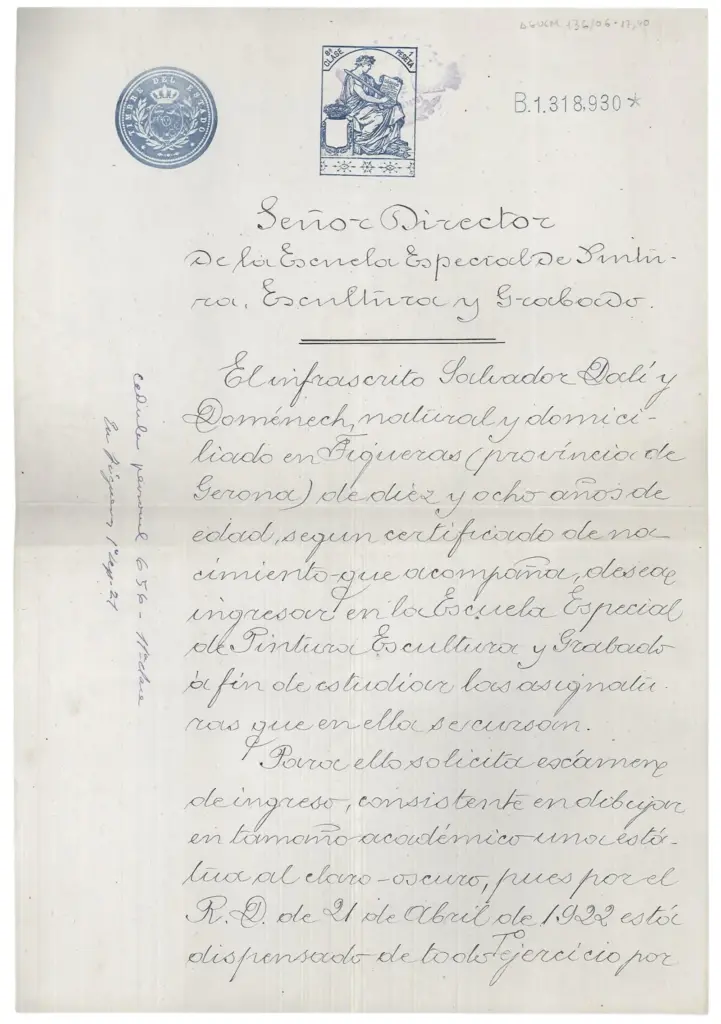 AGUCM 136/06-17,40
TIMBRE DEL ESTADO
8ª CLASE
1 PESETA
B.1.318,930*
Señor Director
De la Escuela Especial De Pintu-
ra, Escultura y Grabado.
El infrascrito Salvador Dalí y
Doménech, natural y domici-
liado en Figueras (provincia de
Gerona) de diez y ocho años de
edad, segun certificado de na
cimiento que acompaña, desea
ingresar en la Escuela Especial
de Pintura Escultura y Grabado
á fin de estudiar las asignatu-
ras que en ella se cursan.
Para ello solicita exámen
de ingreso, consistente en dibujar
en tamaño académico una está-
tua al claro-oscuro, pues por el
R.D. de 21 de Abril de 1922 está
dispensado de todo Ejercicio por
cedula personal 656 - 11ª clase